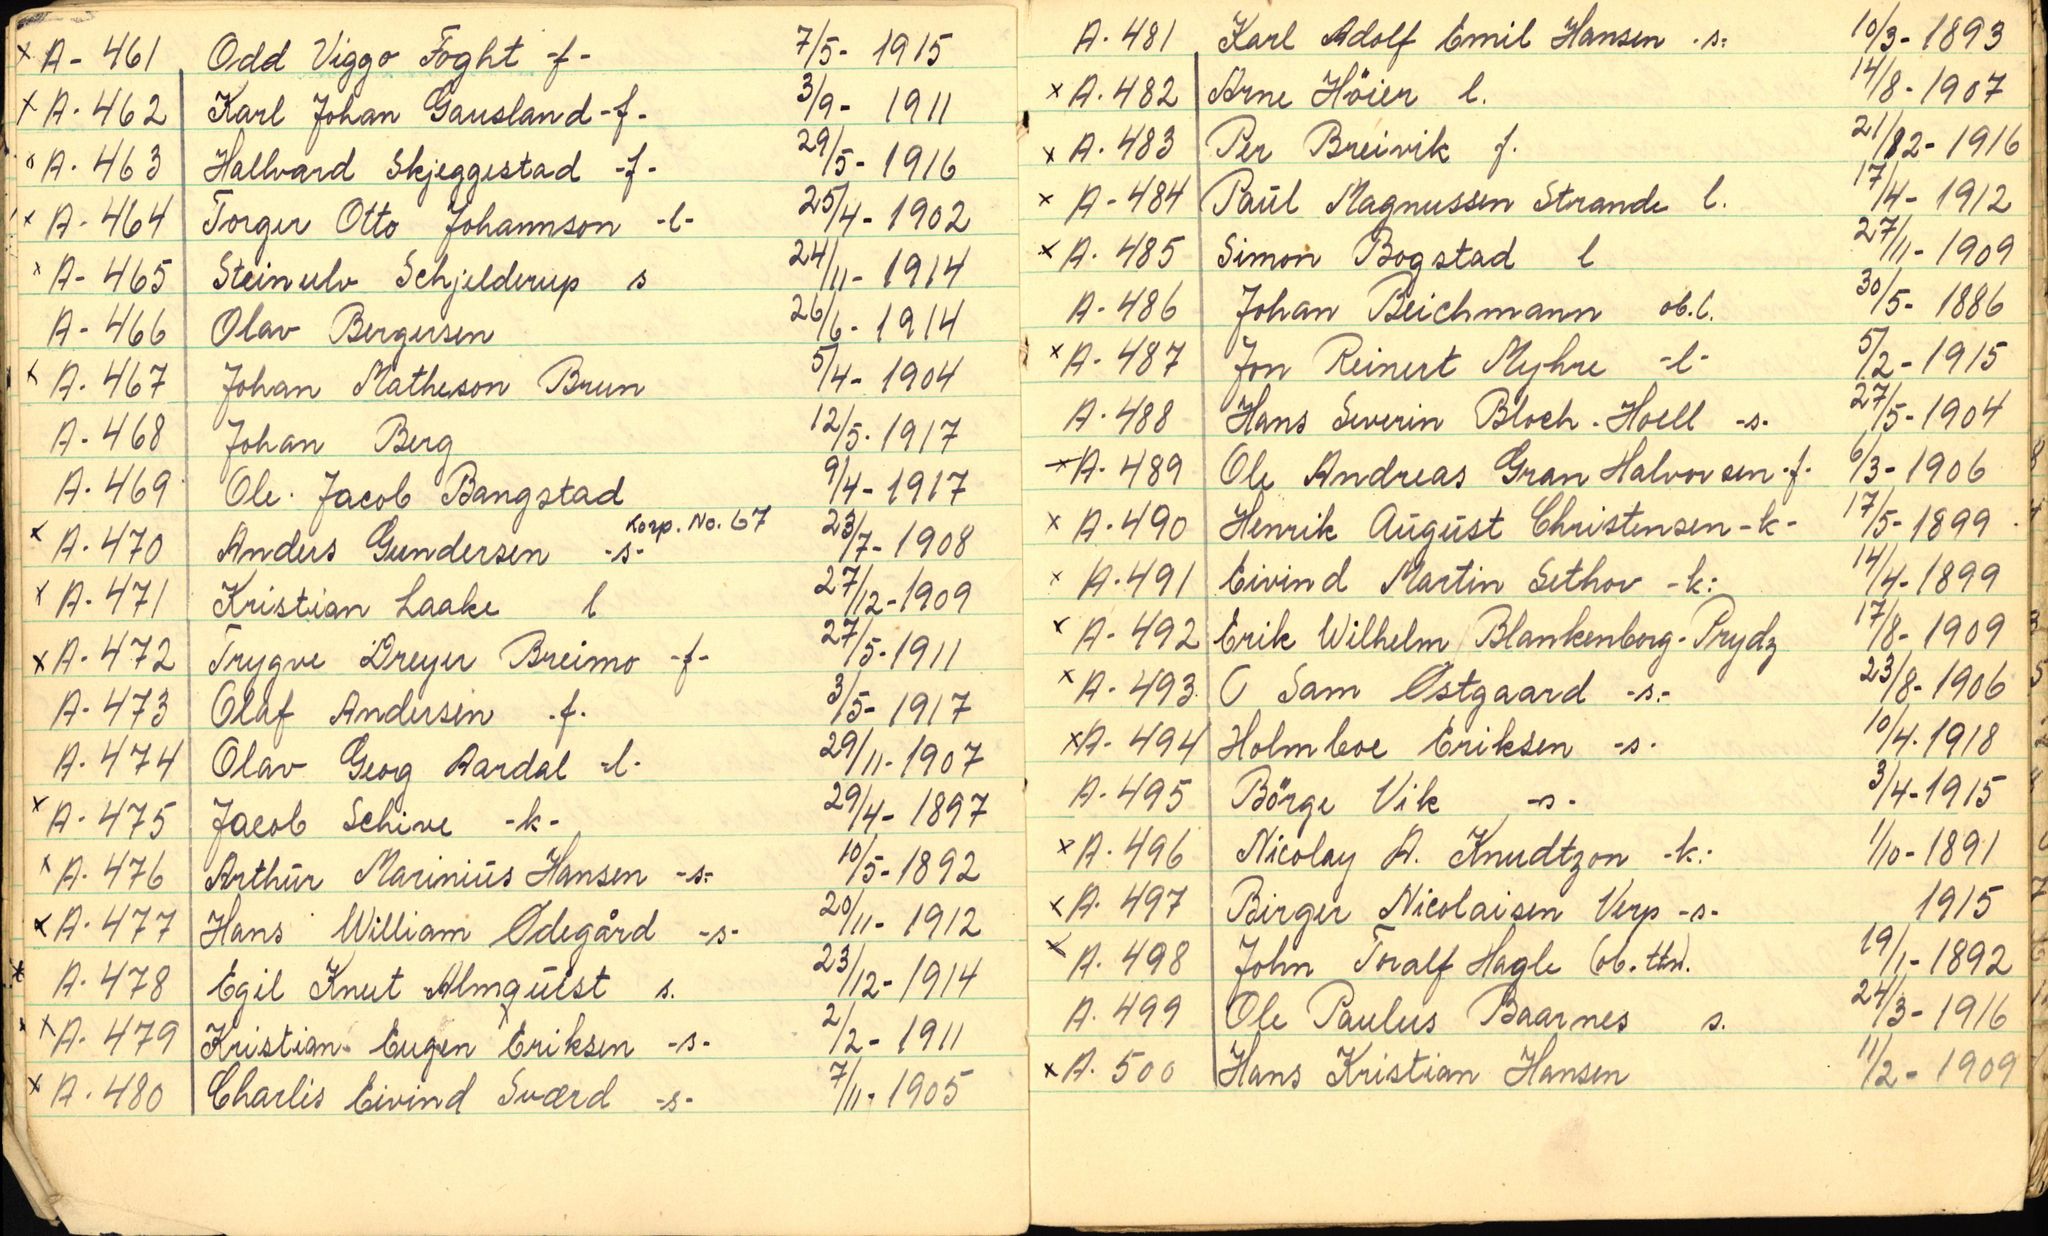 x A - 461 Odd Viggo Foght -f- 7/5 - 1915
x A. 462 Karl Johan Gausland -f- 3/9 - 1911
A. 463 Hallvard Skjeggestad -f- 29/5 - 1916
x A. 464 Torger Otto Johannson -l- 25/4 - 1902
x A- 465 Steinulv Schjelderup s 24/11 - 1914
A - 466 Olav Bergersen 26/6 - 1914
x A. 467 Johan Matheson Brun 5/4 - 1904
A. 468 Johan Berg 12/5. 1917
A. 469 Ole Jacob Bangstad 9/4 - 1917
x A. 470 Anders Gundersen -s- Korp. No. 67 23/7 - 1908
x A. 471 Kristian Laake l 27/12 - 1909
x A. 472 Trygve Dreyer Breimo -f- 27/5 - 1911
A. 473 Olaf Andersen .f. 3/5 - 1917
A. 474 Olav Georg Aardal -l- 29/11 - 1907
x A. 475 Jacob Schive -k- 29/4 - 1897
x A. 476 Arthur Marinius Hansen -s- 10/5 - 1892
x A. 477 Hans William Ødegård -s- 20/11 - 1912
x A. 478 Egil Knut Almquist s. 23/12 - 1914
x A. 479 Kristian Eugen Eriksen -s- 2/2 - 1911
x A. 480 Charlis Eivind Sværd -s- 7/11 - 1905
A. 481 Karl Adolf Emil Hansen .s- 10/3 - 1893
x A. 482 Arne Höier l. 14/8 - 1907
x A. 483 Per Breivik f. 21/82 - 1916
x A - 484 Paul Magnussen Strande l. 17/4 - 1912
x A. 485 Simon Bogstad l 27/11 - 1909
A. 486 Johan Beichmann ob.l. 30/5 - 1886
x A. 487 Jon Reinert Myhre -l- 5/2 - 1915
A. 488 Hans Severin Bloch - Hoell -s- 27/5 - 1904
x A. 489 Ole Andreas Gran Halvorsen .f. 6/3 - 1906
x A. 490 Henrik August Christensen -k- 17/5 - 1899
x A. 491 Eivind Martin Sethov -k- 14/4 - 1899
x A - 492 Erik Wilhelm Blankenborg - Prydz 17/8 - 1909
x A. 493 O Sam Østgaard -s- 23/8 - 1906
x A. 494 Holmboe Eriksen -s- 10/4. 1918
A. 495 Börge Vik -s- 3/4 - 1915
x A. 496 Nicolay A. Knudtzon -k- 1/10 - 1891
x A. 497 Birger Nicolaisen Verp -s- 1915
x A. 498 John Toralf Hagle (ob. ttn). 19/1 - 1892
A. 499 Ole Paulus Baarnes s. 24/3 - 1916
x A. 500 Hans Kristian Hansen 11/2 - 1909